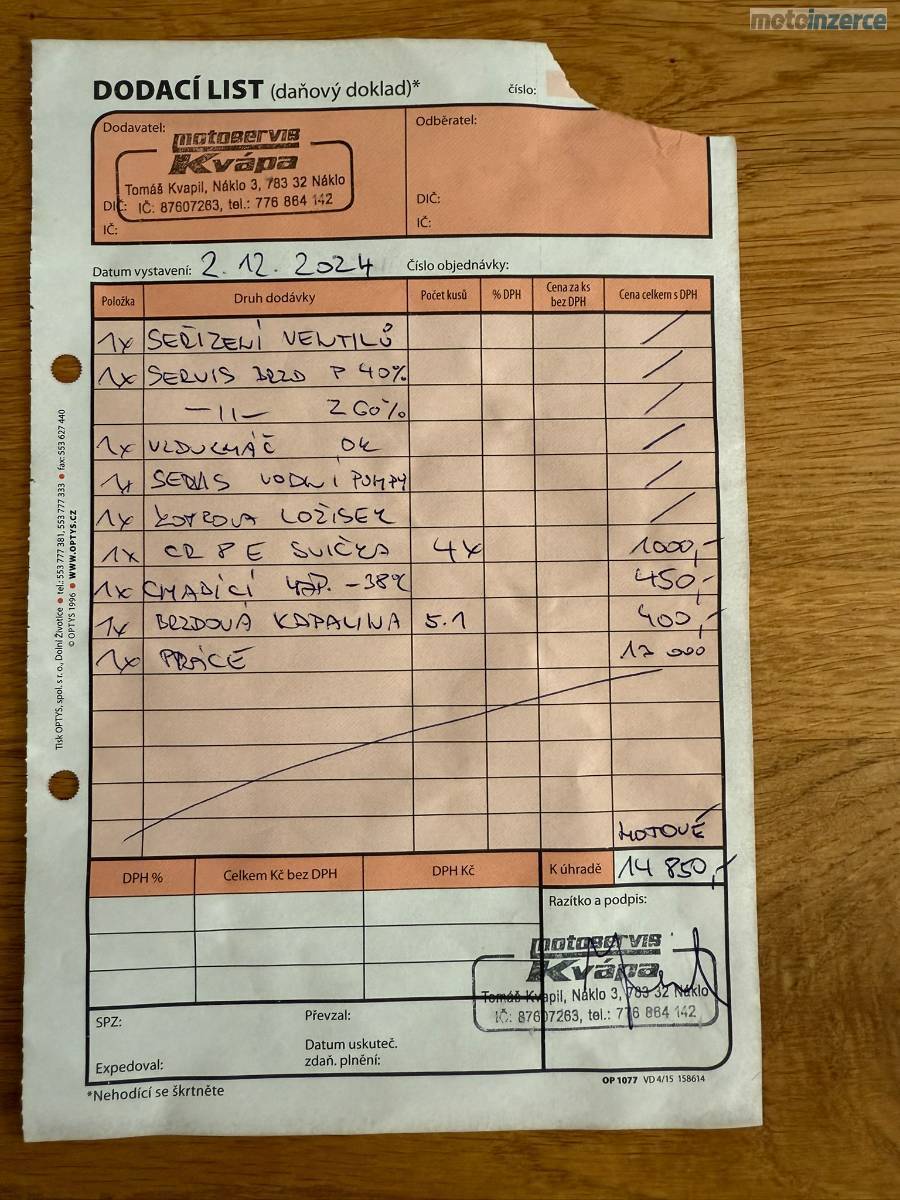 motoinzerce
DODACÍ LIST (daňový doklad)* číslo:
Dodavatel: Odběratel:
motoservis
Kvápa
Tomáš Kvapil, Náklo 3, 783 32 Náklo
IČ: 87607263, tel.: 776 864 142
DIČ: DIČ:
IČ: IČ:
Datum vystavení: 2. 12. 2024 Číslo objednávky:
Položka Druh dodávky Počet kusů % DPH Cena za ks bez DPH Cena celkem s DPH
1x SEŘÍZENÍ VENTILŮ /
1x SERVIS BRZD P 40% /
—11— Z 60% /
1x VZDUCHÁČ OK /
1x SERVIS VODNÍ PUMPY /
1x LOŽISEK /
1x CR 8 E SVÍČKA 4x 1000,-
1x CHLADÍCÍ KAP. -38°C 450,-
1x BRZDOVÁ KAPALINA 5.1 400,-
1x PRÁCE 13 000
HOTOVĚ
DPH % Celkem Kč bez DPH DPH Kč K úhradě 14 850,-
Razítko a podpis:
motoservis
Kvápa
Tomáš Kvapil, Náklo 3, 783 32 Náklo
IČ: 87607263, tel.: 776 864 142
SPZ: Převzal:
Expedoval: Datum uskuteč. zdaň. plnění:
*Nehodící se škrtněte
OP 1077 VD 4/15 158614
Tisk OPTYS, spol. s r. o., Dolní Životice • tel.: 553 777 381, 553 777 333 • fax: 553 627 440
© OPTYS 1996 • WWW.OPTYS.CZ